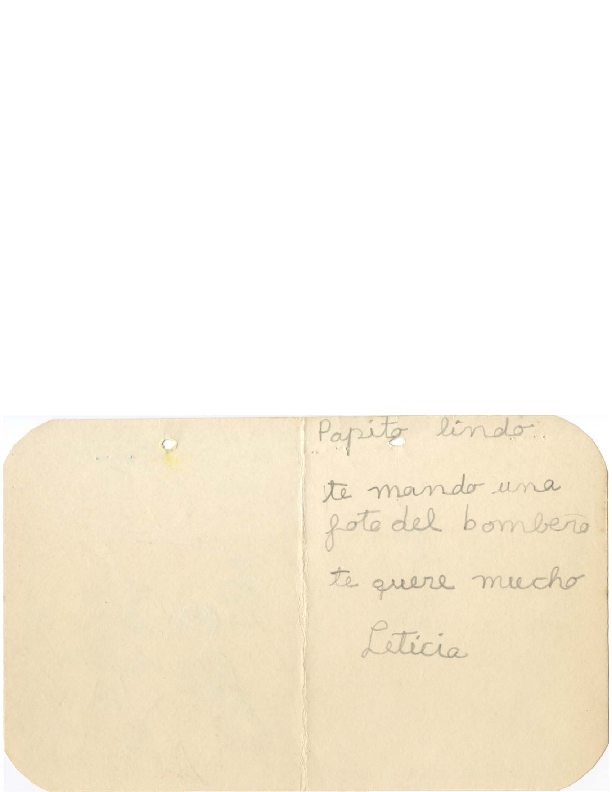 Papito lindo..
te mando una
foto del bombero
te quere mucho
Leticia